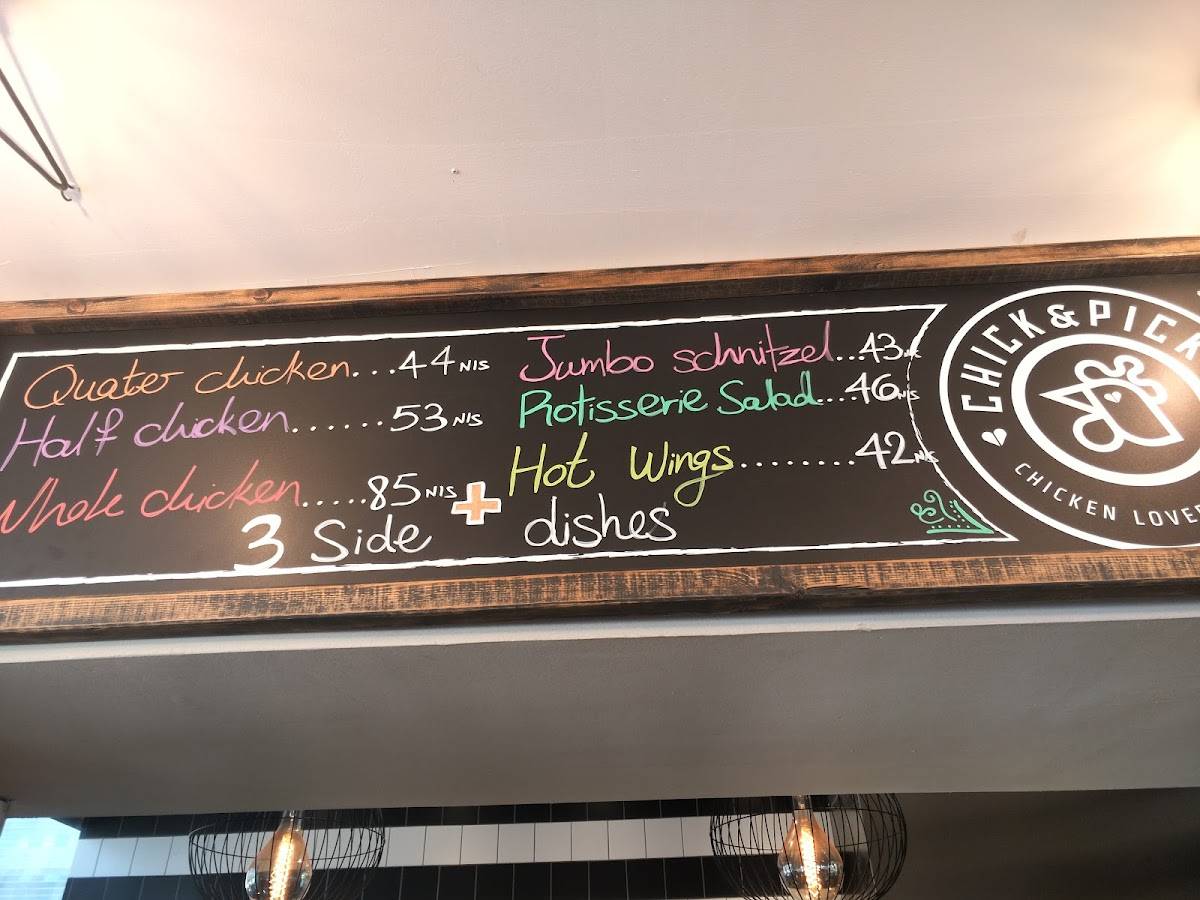 Quater chicken...44 NIS
Half chicken......53 NIS
Whole chicken.....85 NIS
Jumbo schnitzel...43
Rotisserie Salad....46 NIS
Hot Wings.........42 NIS
3 Side + dishes
CHICK&PICK
CHICKEN LOVER